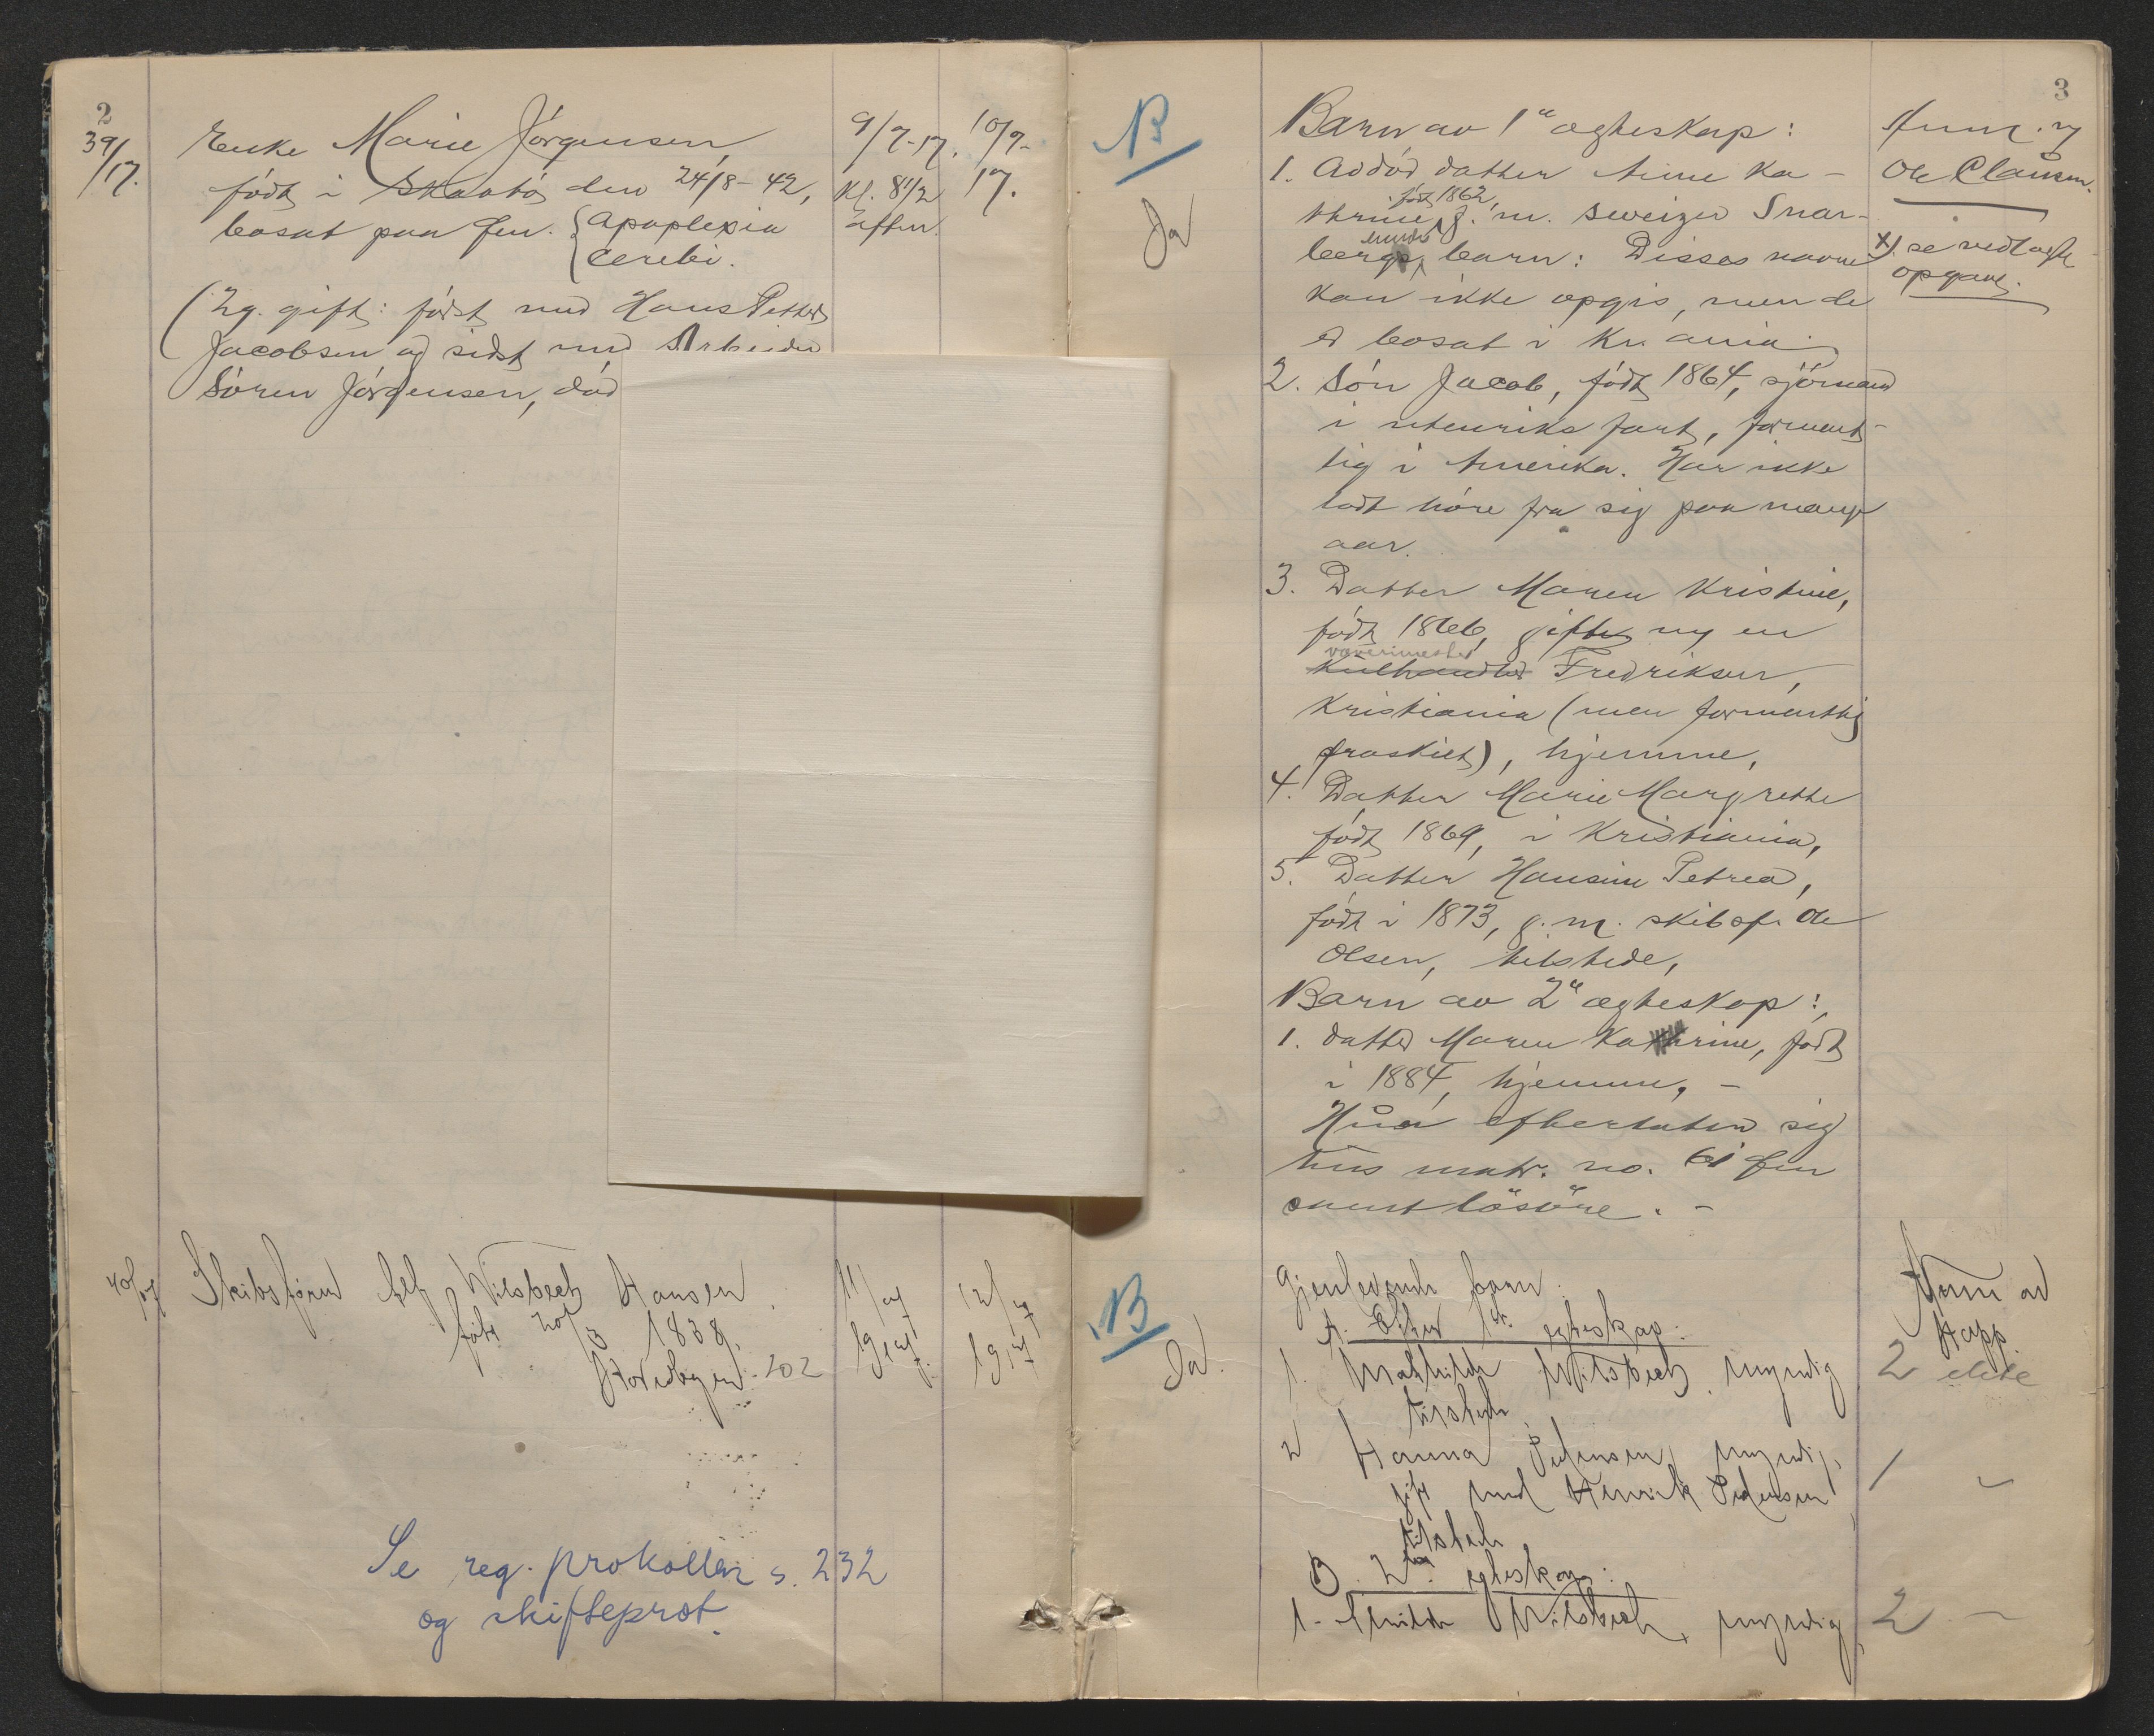 2
39/17.
Enke Marie Jörgensen,
födt i Skaatö den 24/8-42,
bosat paa Øen. {Apoplexia
cerebi.
(2g. gift: först med Hans Petter
Jacobsen og sidst med Arbeider
Sören Jörgensen, död
9/7-17.
Kl. 8 1/2
aften.
10/7-
17.
40/17
Skibsförer Wilsbech Hansen.
födt 20/3 1838.
202
11/7
1917.
12/7
1917
Se reg. protokollen s. 232
og skifteprot.
3
B
Ja
Barn av 1ste ægteskap:
1. Avdöd datter Anne Ka-
födt 1862,
thrine, g. m. sweizer Snar-
bergs, barn: Disses navne
kan ikke opgis, men de
er bosat i Kr.ania.
2. Sön Jacob, födt 1864, sjömand
i utenriks fart, forment-
lig i Amerika. Har ikke
latt höre fra sig paa mange
aar.
3. Datter Maren Kristine,
födt 1866, gift m. en
væverimester
Kulhandler Fredriksen,
Kristiania (men formentlig
fraskilt), hjemme,
4. Datter Marie Margrethe
födt 1869, i Kristiania,
5. Datter Hansine Petrea,
födt i 1873, g. m. skibsf. Ole
Olsen, tilstede,
Barn av 2det ægteskap:
1. datter Maren Kathrine, födt
i 1884, hjemme. -
Hun efterlater sig
hus matr. no. 61 Øen
samt lösöre. -
Anm. av
Ole Clausen.
x) se vedlagte
opgave.
B
Ja.
Gjenlevende barn:
A. Efter 1ste egteskap:
1. Mathilde Wilsbech myndig
tilstede
2 Hanna Pedersen, myndig,
gift med Henrik Pedersen
tilstede
B. 2det egteskap:
1. Wilsbech, myndig,
Anm av
Happ.
2
1 -
2 -